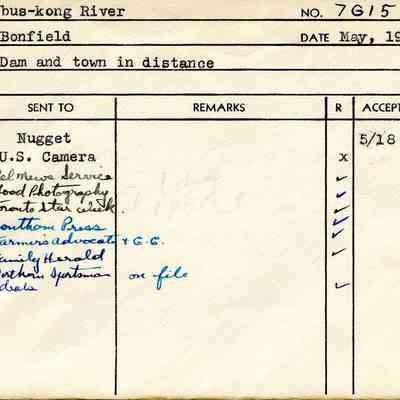 bus-kong River NO. 7G15
Bonfield DATE May, 19
Dam and town in distance
SENT TO REMARKS R ACCEPT
Nugget 5/18
U.S. Camera x
el News Service ✓
ood Photography ✓
oronto Star Week. ✓
outham Press ✓
armer's Advocate & C.G. ✓
amily Herald ✓
orthern Sportsman on file
deals ✓